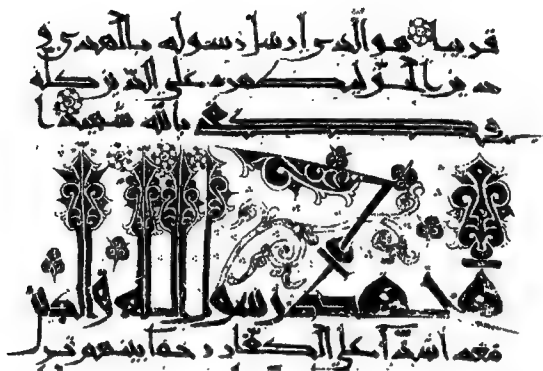 قريبا هو الذي ارسل رسوله بالهدى و
دين الحق ليظهره على الدين كله
و كفى بالله شهيدا
محمد رسول الله والذين
معه اشداء على الكفار رحماء بينهم